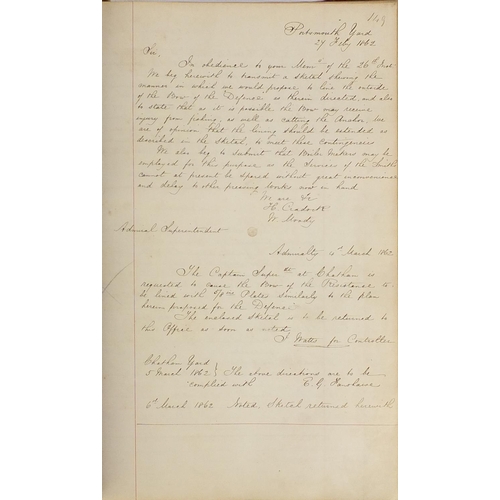 149
Portsmouth Yard
27 Feby 1862
Sir,
In obedience to your Memo of the 26th Inst
We beg herewith to transmit a sketch shewing the
manner in which we would propose to line the outside
of the Bow of the Defence as therein directed, and also
to state that as it is possible the Bow may receive
injury from fishing, as well as catting the Anchor, We
are of opinion that the lining should be extended as
described in the sketch, to meet these contingencies
We also beg to submit that Boiler Makers may be
employed for this purpose as the Services of the Smiths
cannot at present be spared without great inconvenience
and delay to other pressing works now in hand
We are &c
H. Cradock
W. Moody
Admiral Superintendent
Admiralty 4th March 1862
The Captain Superdt at Chatham is
requested to cause the Bow of the Resistance to
be lined with Plates similarly to the plan
herein proposed for the Defence
The enclosed Sketch is to be returned to
this Office as soon as noted
J Watts for Controller
Chatham Yard
5 March 1862 } The above directions are to be
complied with E. G. Fanshawe
6th March 1862 Noted, Sketch returned herewith